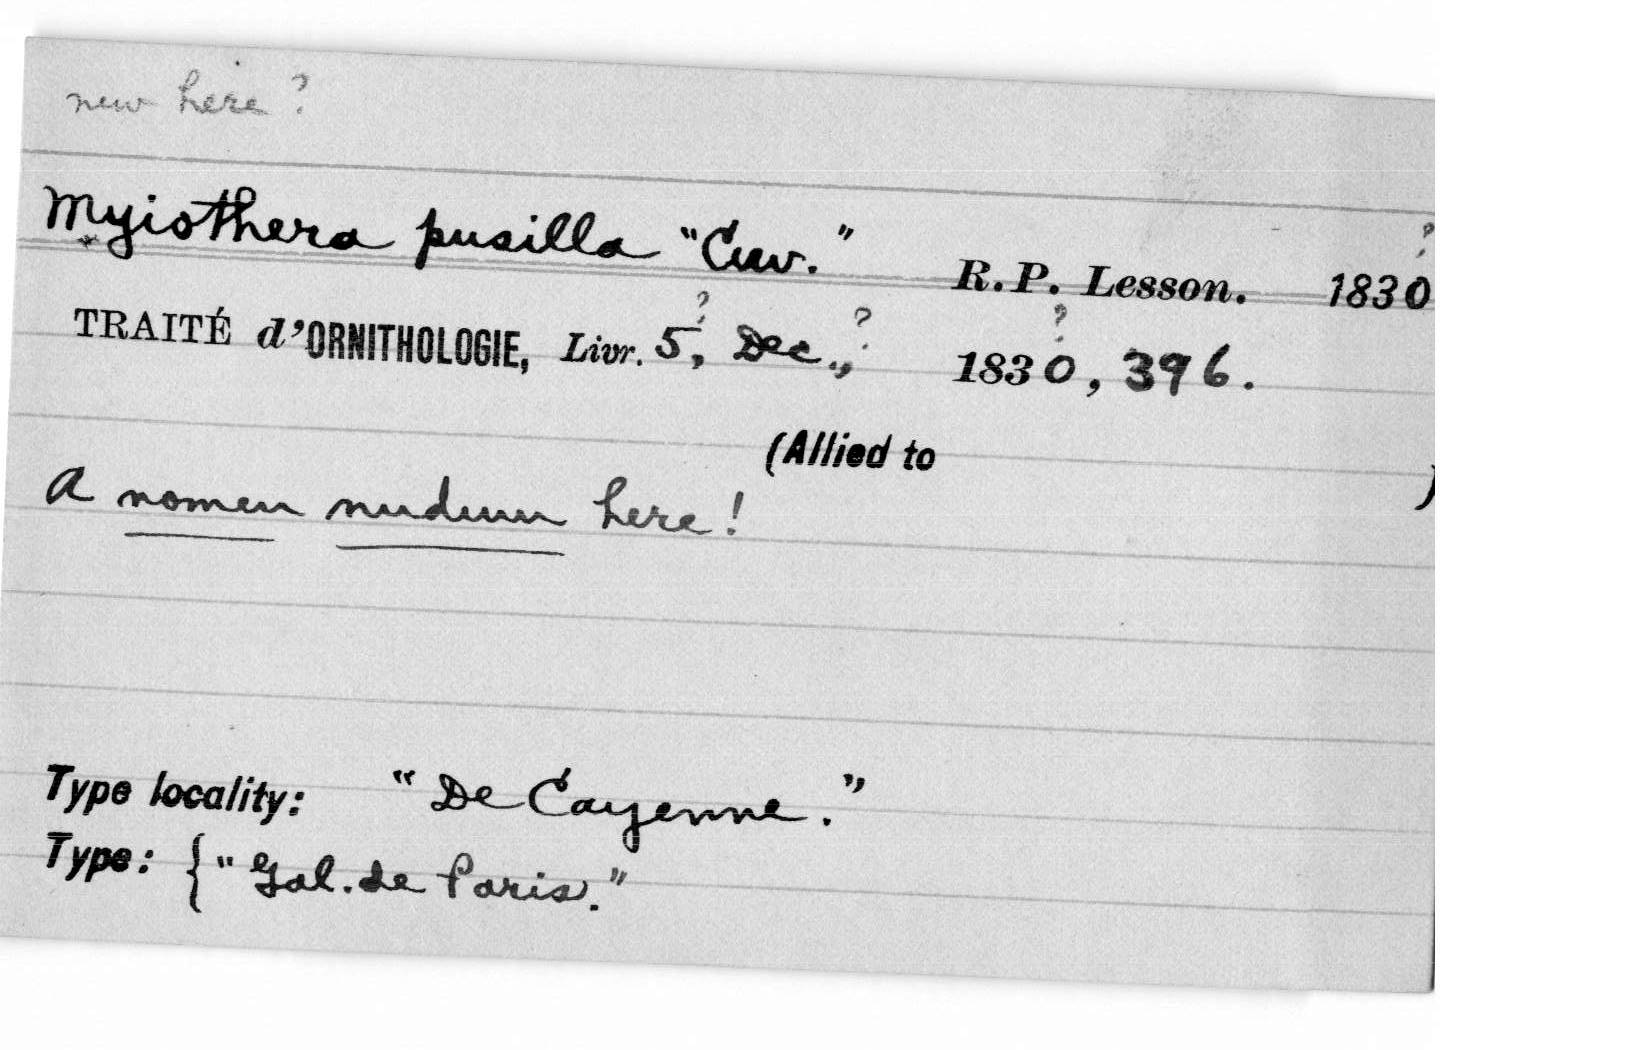 new here?
Myiothera pusilla "Cuv." R.P. Lesson. 1830?
TRAITÉ d'ORNITHOLOGIE, Livr. 5?, Dec.,? 1830?, 396.
(Allied to )
A nomen nudum here!
Type locality: "De Cayenne."
Type: { "Gal. de Paris."